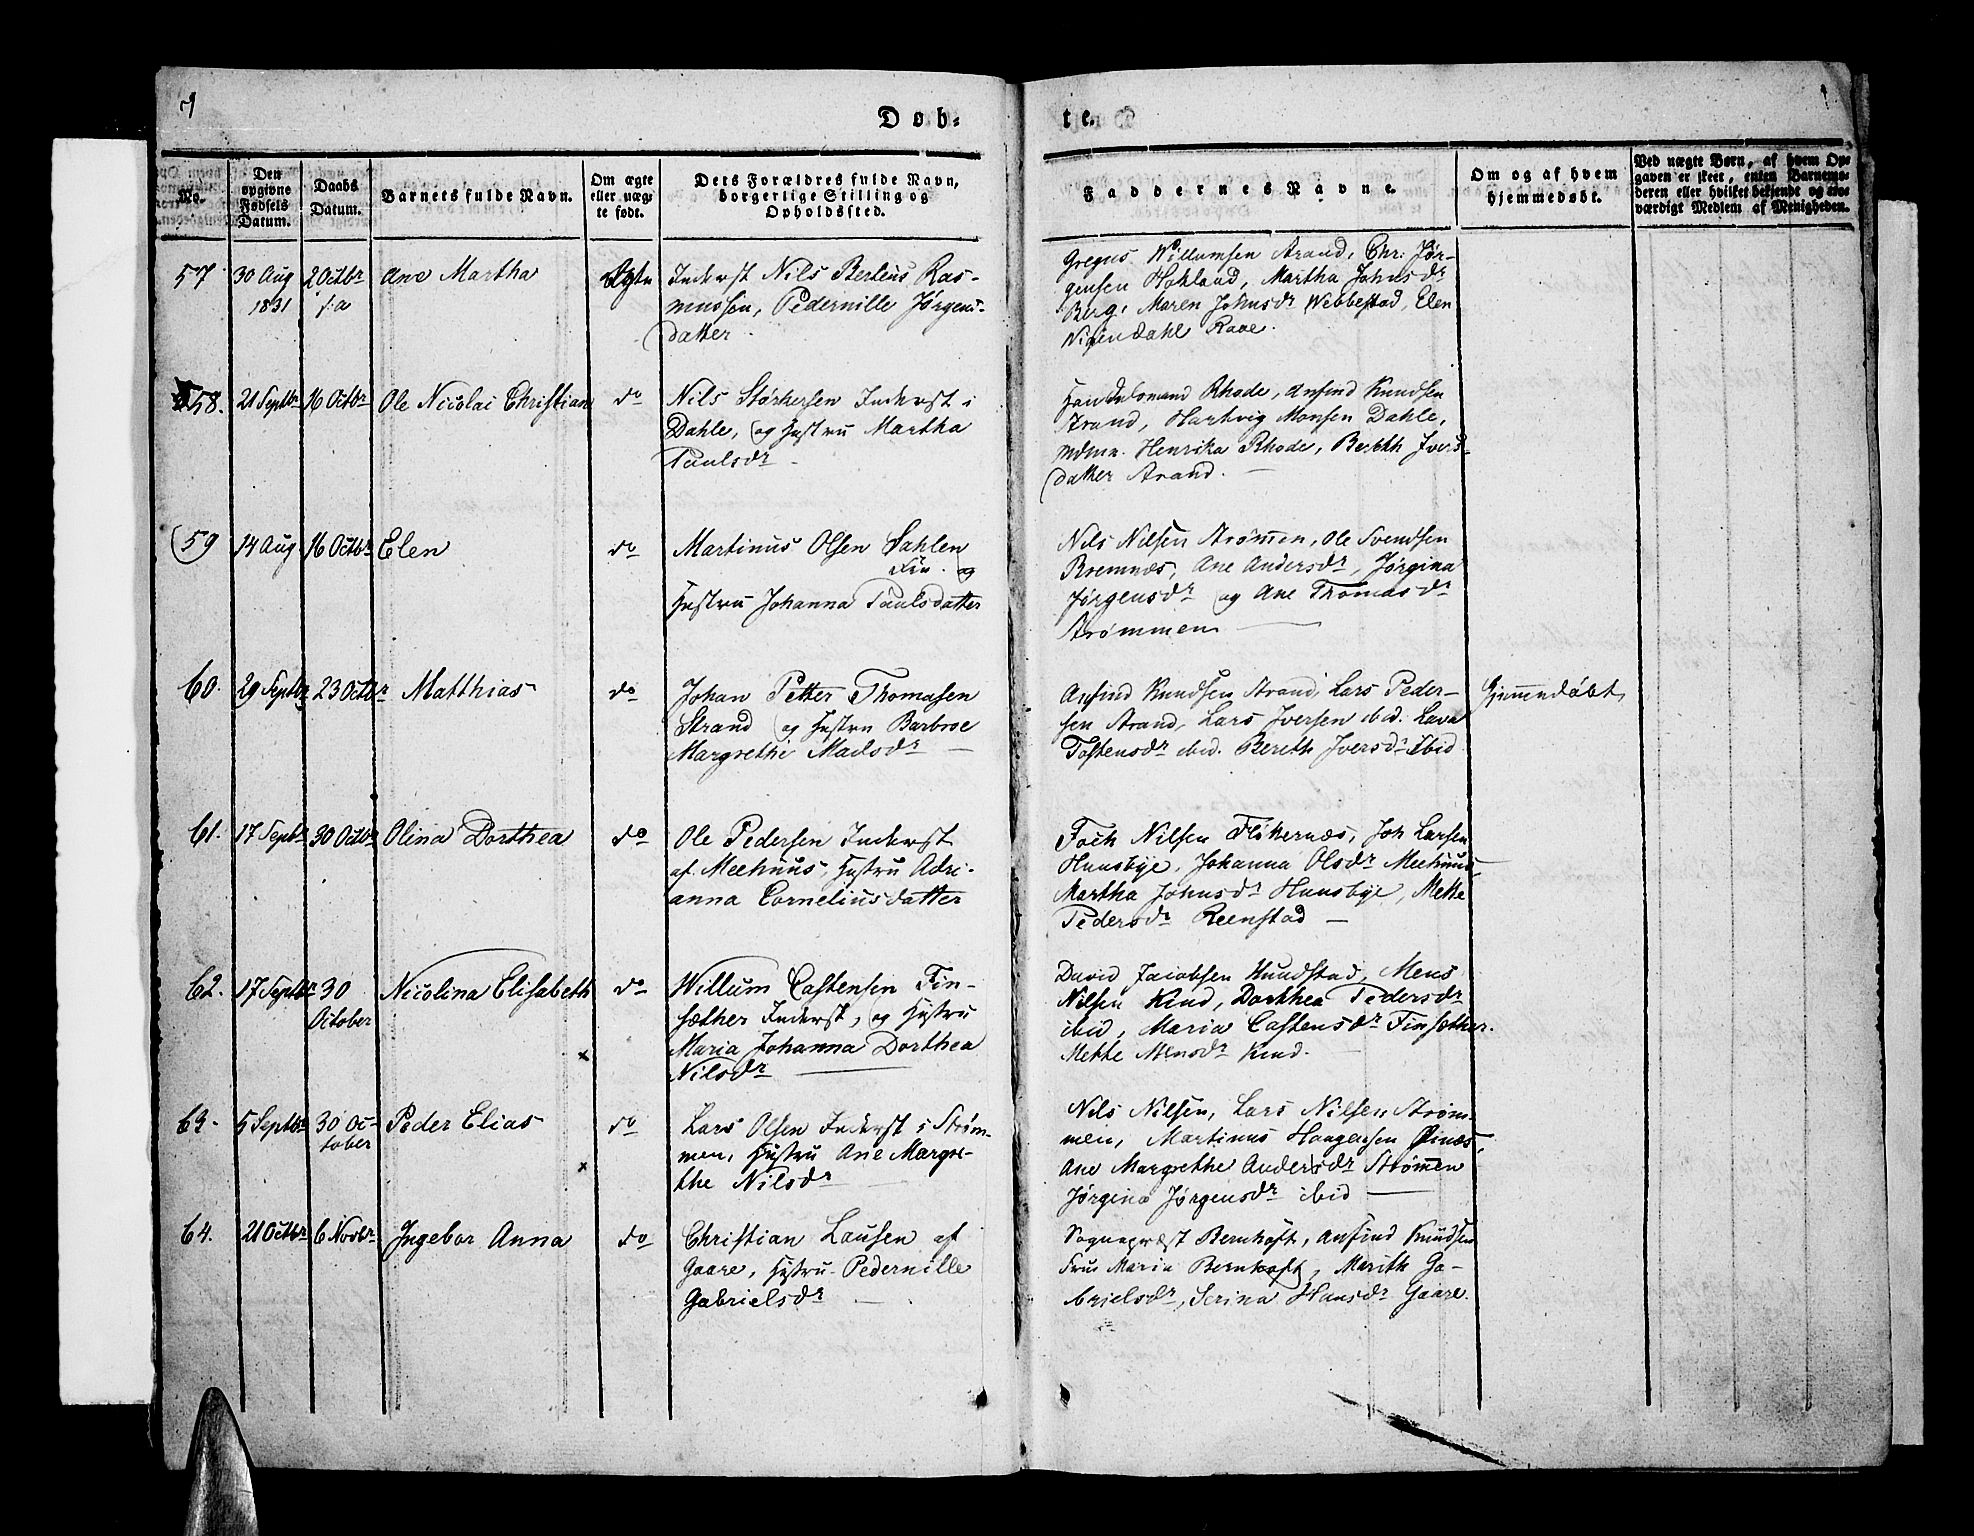 Dob-
te.
No.
Den opgivne Fødsels Datum.
Daabs Datum.
Barnets fulde Navn.
Om ægte eller uægte født.
Dets Forældres fulde Navn, borgerlige Stilling og Opholdssted.
Faddernes Navne.
Om og af hvem hjemmedøbt.
Ved uægte Børn, af hvem Opgaven er skeet, enten Barnemoderen eller hvilket bekjendt og troværdigt Medlem af Menigheden.
57
30 Aug
1831
2 Octbr
s: a
Ane Martha
Ægte
Inderst Nils Berteus Ras-
mussen, Pedernille Jørgens-
datter
Gregus Willumsen Strand, Chr: Jør-
gensen Hokland, Martha Johnsdr
Berg, Maren Johnsdr Webbestad, Elen
dahl Raae.
58.
21 Septbr
16 Octbr
Ole Nicolai Christian
do
Nils Størkersen Inderst i
Dahle, og Hustru Martha
Paulsdr
Rhode, Anfind Knudsen
Strand, Hartvig Monsen Dahle,
Henrika Rhode, Bereth Ivers-
datter Strand.
59
14 Aug
16 Octbr
Elen
do
Martinus Olsen Dahlen
Fin. og
Hustru Johanna Paulsdatter
Nils Nilsen Strømen, Ole Svendsen
Bremnæs, Ane Andersdr, Jørgina
Jørgensdr og Ane Thomasdr
Strømmen
60.
29 Septbr
23 Octbr
Matthias
do
Johan Petter Thomasen
Strand og Hustru Barbroe
Margrethe Madsdr
Anfind Knudsen Strand, Lars Peder-
sen Strand, Lars Iversen ibid. Lava
Tostensdr ibid. Bereth Iversdr Ibid
Hjemmedøbt
61.
17 Septbr
30 Octbr
Olina Dorthea
do
Ole Pedersen Inderst
af Meehuus, Hustru Adri-
anna Corneliusdatter
Foch Nilsen Flokernæs, Joh Larsen
Huusbye, Johanna Olsdr Meehuus,
Martha Johnsdr Huusbye, Mette
Pedersdr Reenstad
62.
17 Septbr
30
October
Nicolina Elisabeth
do
Willum Castensen Fin-
sæther Inderst, og Hustru
Maria Johanna Dorthea
Nilsdr
David Jacobsen Hundstad, Mens
Nilsen Kind, Dorthea Pedersdr
ibid, Maria Castensdr Finsæther.
Mette Mensdr Kind.
63.
5 Septbr
30 Oc-
tober
Peder Elias
do
Lars Olsen Inderst i Strøm-
men, Hustru Ane Margre-
the Nilsdr
Nils Nilsen, Lars Nilsen Strøm-
men, Martinus Haagensen
Ane Margrethe Andersdr Strømen
Jørgina Jørgensdr ibid
64.
21 Octbr
6 Novbr
Ingebor Anna
do
Christian Lausen af
Gaare, Hustru Pedernille
Gabrielsdr
Sognepræst Bernhoft, Anfind Knudsen
Frue Maria Bernhoft, Marith Ga-
brielsdr, Serina Hansdr Gaare.